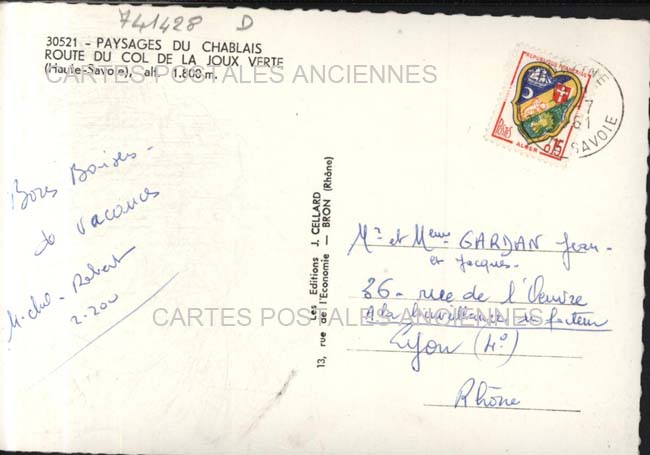 741428 D
30521 - PAYSAGES DU CHABLAIS
ROUTE DU COL DE LA JOUX VERTE
(Haute-Savoie), alt. 1.800 m.
CARTES POSTALES ANCIENNES
Bons Baisers
de Vacances
Michel - Robert
2-200
Les Editions J. CELLARD
13, rue de l'Economie — BRON (Rhône)
REPUBLIQUE FRANÇAISE
Postes
ALGER
0,15
7
61
SAVOIE
Mr et Meme GARDAN Jean-
et Jacques-
36 - rue de l'
A la bienveillance du facteur
Lyon (4°)
Rhône
CARTES POSTALES ANCIENNES